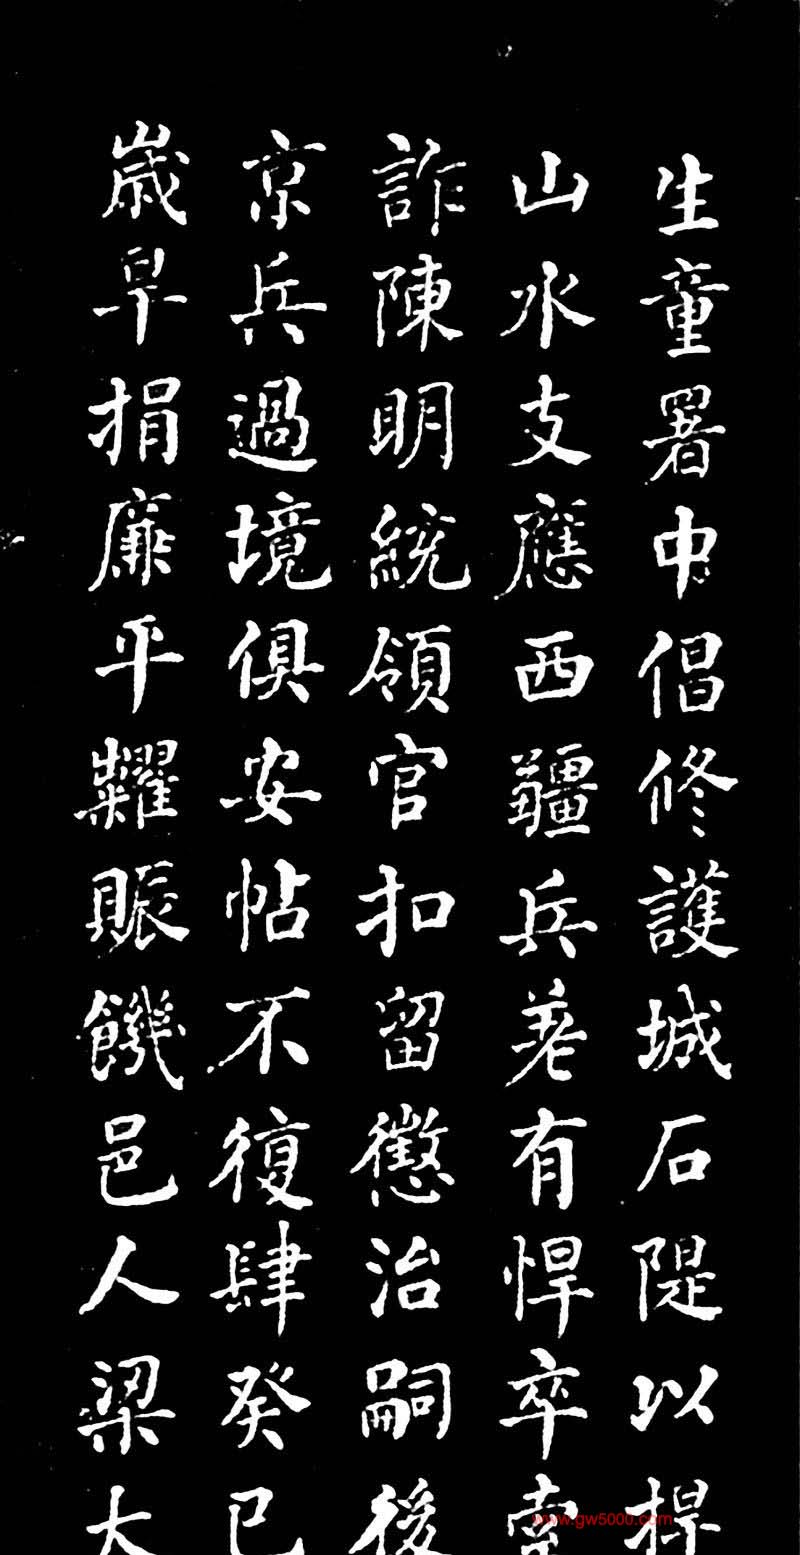 生童署中倡修護城石隄以捍
山水支應西疆兵差有悍卒索
詐陳明統領官扣留懲治嗣後
京兵過境俱安帖不復肆癸巳
歲旱捐廉平糶賑饑邑人梁大
www.gw5000.com